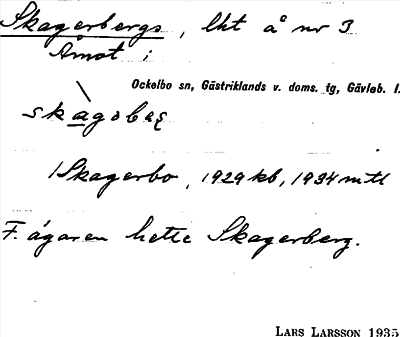 Skagerbergs, lht å nr 3
Åmot i
Ockelbo sn, Gästriklands v. doms. tg, Gävleb. l.
skàgəbæʂ
/Skagerbo, 1929 kb, 1934 mtl
F. ägaren hette Skagerberg.
LARS LARSSON 1935